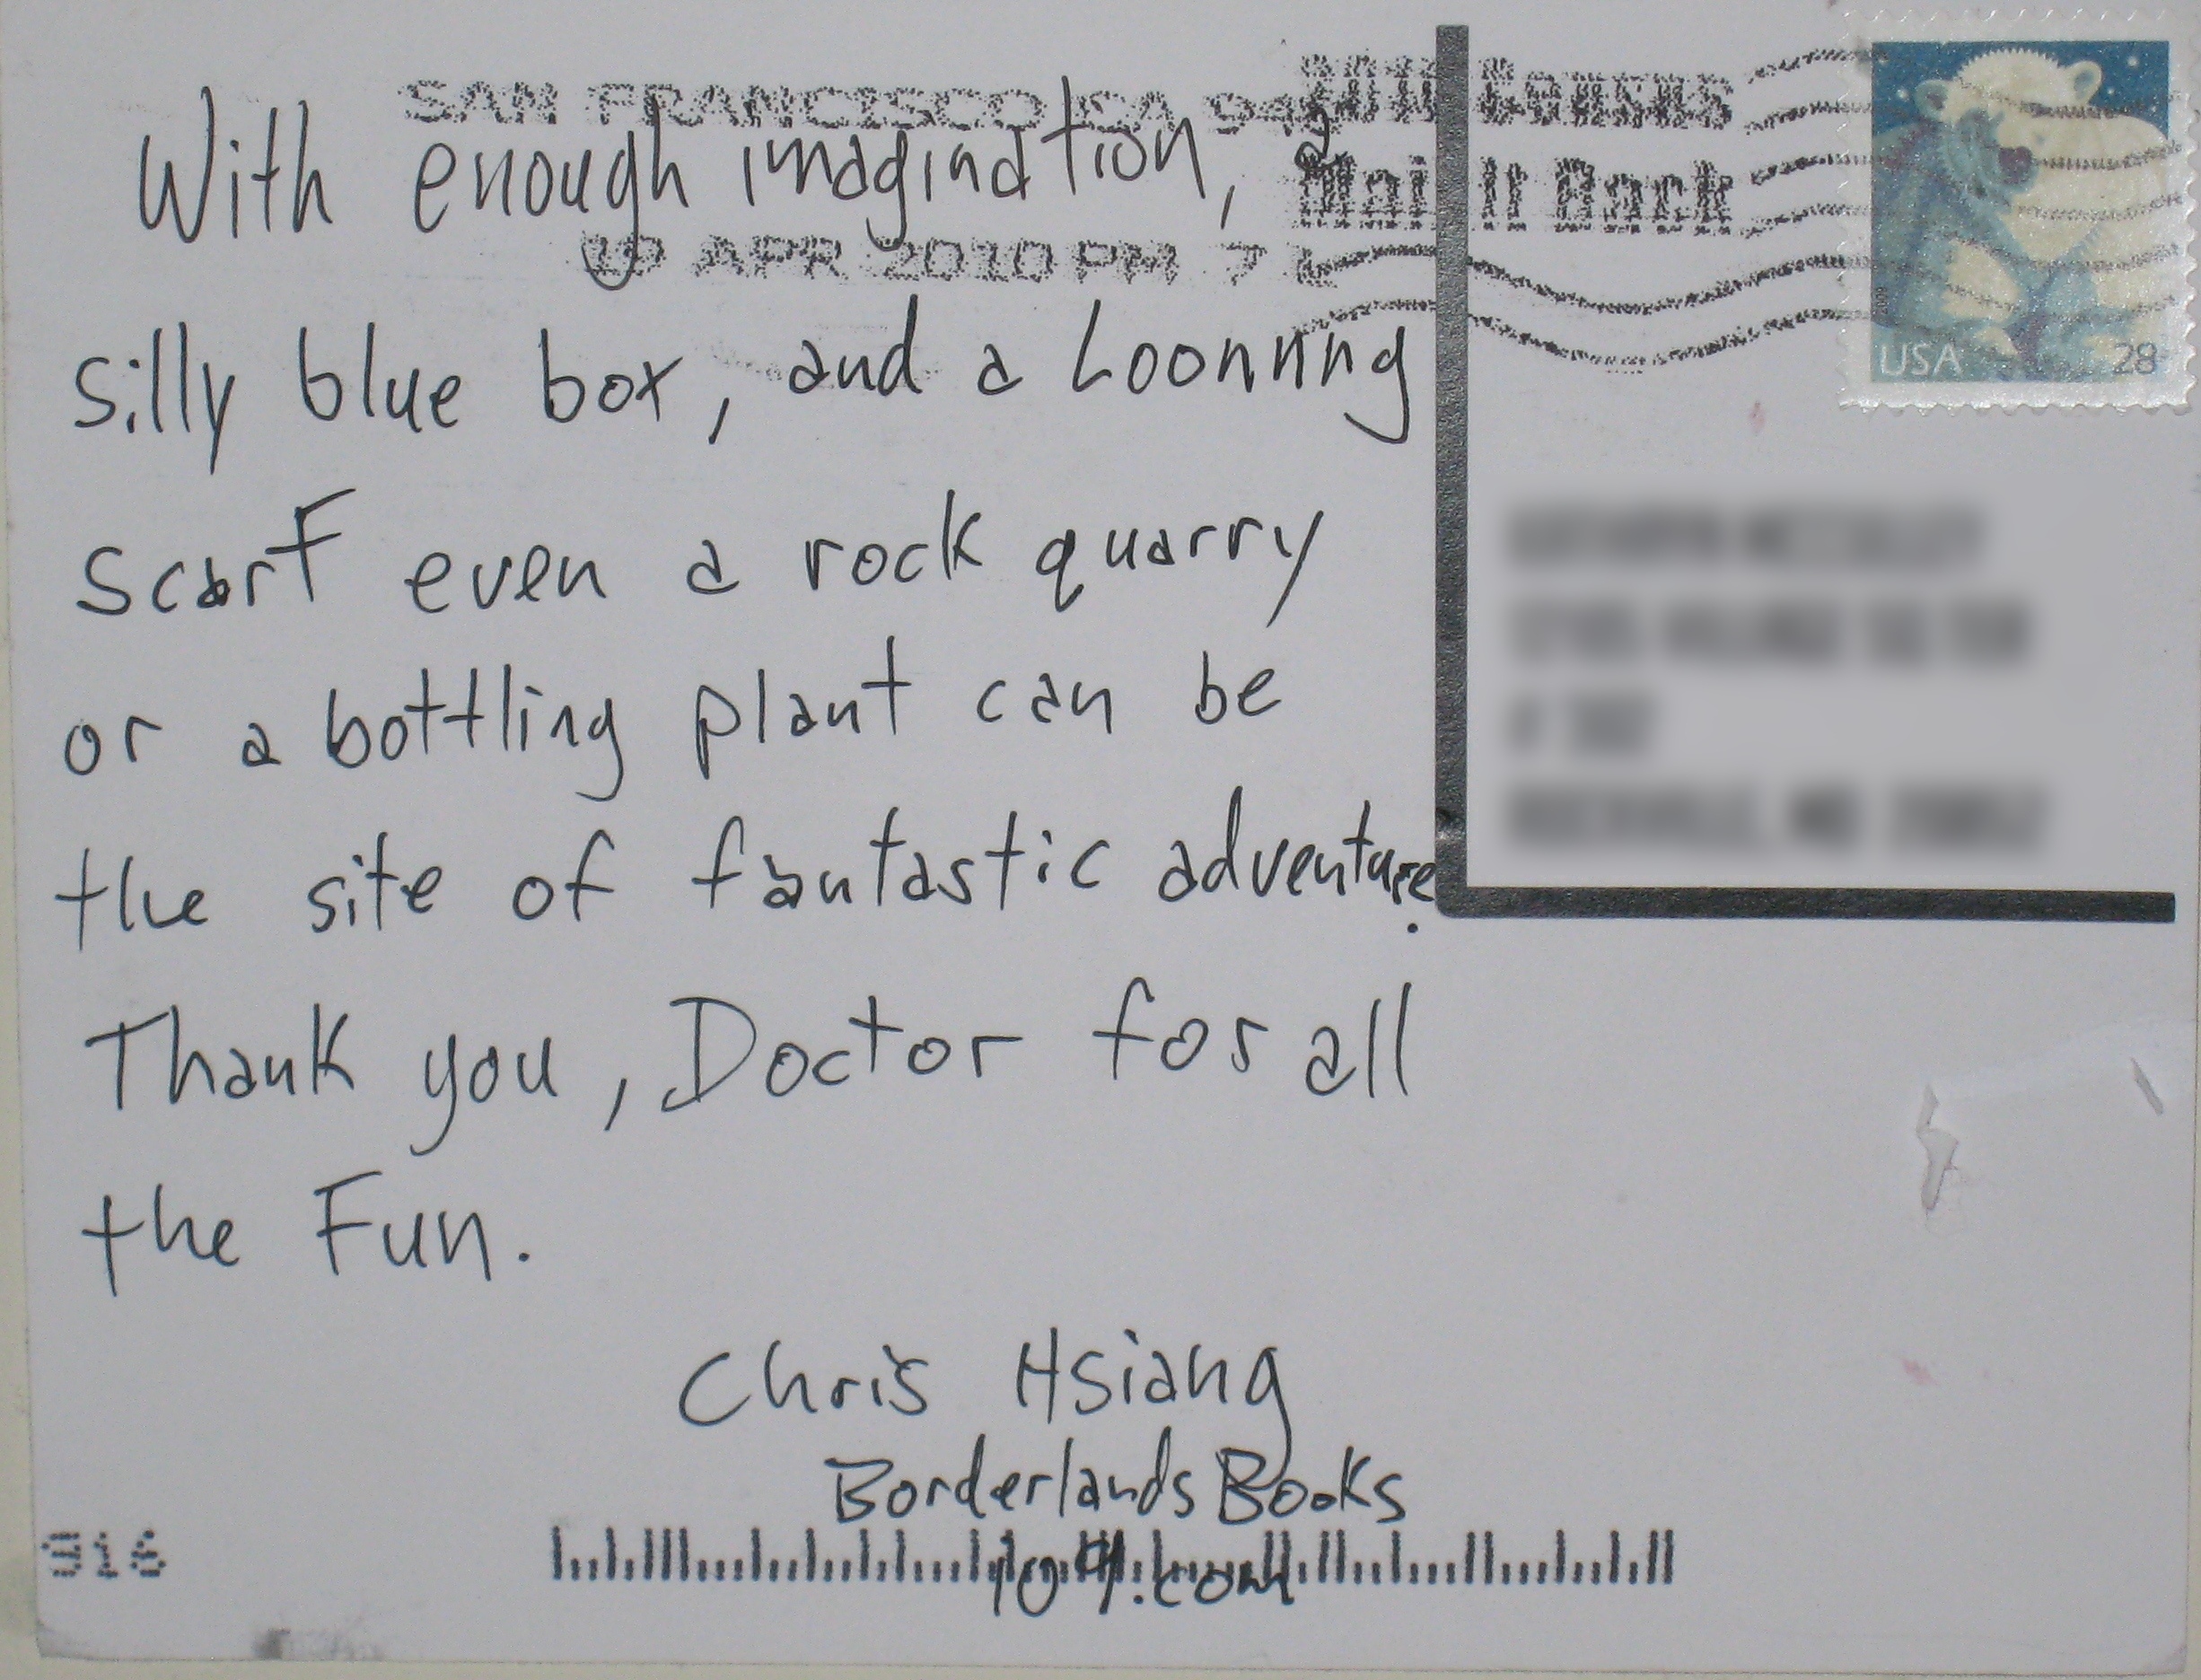 SAN FRANCISCO CA
Mail It Back
19 APR 2010 PM 7 L
USA 28
With enough imagination, a
silly blue box, and a Loonnng
scarf even a rock quarry
or a bottling plant can be
the site of fantastic adventure.
Thank you, Doctor for all
the Fun.
Chris Hsiang
Borderlands Books
io9.com
316